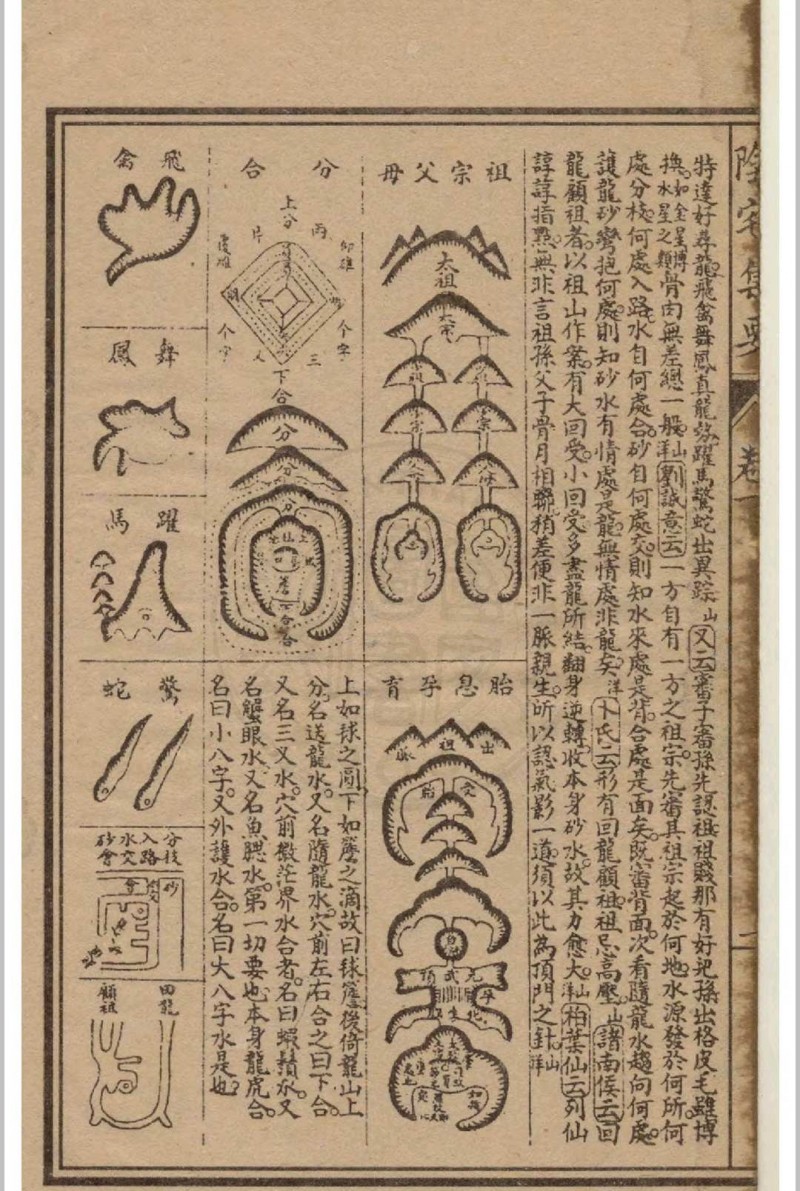 陰宅集要
卷
特達好尋龍飛禽舞鳳真龍㳺躍馬驚蛇出異踪山又云審子審孫先認祖祖賤那有好兒孫出格皮毛雖博
換如金星博水星之類骨肉無差總一般山洋劉誠意云一方自有一方之祖宗先審其祖宗起於何地水源發於何所何
處分枝何處入路水自何處合砂自何處交則知水來處是背合處是面矣既審背面次看隨龍水趨向何處
護龍砂彎抱何處則知砂水有情處是龍無情處非龍矣洋卜氏云形有回龍顧祖祖忌高壓山諸南侯云回
龍顧祖者以祖山作案有大回受小回受多盡龍所結翻身逆轉收本身砂水故其力愈大山洋柏葉仙云列仙
諄諄指點無非言祖孫父子骨月相聯稍差便非一脈親生所以認氣影一道須以此為頂門之針山洋
祖宗父母
太祖
胎息孕育
出祖
胎
息
元武頂
孕
化生
分合
上分
雌雄
雌雄
个字
个字
三
下合
分
分
分
合
上如毬之圓下如簷之滴故曰毬簷後倚龍山上
分名送龍水又名隨龍水穴前左右合之曰下合
又名三叉水穴前微茫界水合者名曰蝦鬚水又
名蟹眼水又名魚腮水第一切要也本身龍虎合
名曰小八字又外護水合名曰大八字水是也
飛禽
舞鳳
躍馬
驚蛇
分枝入路水交砂會
砂
會
回龍顧祖